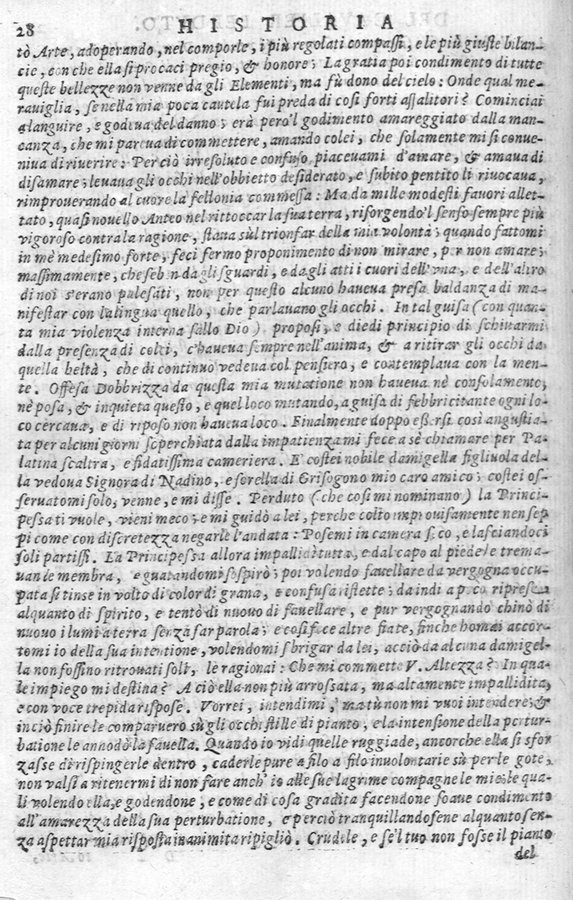 28 HISTORIA
tò Arte, adoperando, nel comporle, i più regolati compassi, e le più giuste bilan-
cie, con che ella si procaci pregio, & honore; La gratia poi condimento di tutte
queste bellezze non venne da gli Elementi, ma fù dono del cielo: Onde qual me-
raviglia, se nella mia poca cautela fui preda di così forti assalitori? Cominciai
a languire, e godeva del danno; erà però'l godimento amareggiato dalla man-
canza, che mi pareva di commettere, amando colei, che solamente mi si conve-
niva di riverire: Perciò irresoluto e confuso piacevami d'amare, & amava di
disamare; levava gli occhi nell'obbietto desiderato, e subito pentito li rivocava,
rimproverando al cuore la fellonia commessa: Ma da mille modesti favori allet-
tato, quasi novello Anteo nel rittoccar la sua terra, risorgendo'l senso sempre più
vigoroso contra la ragione, stava sùl trionfar della mia volontà; quando fattomi
in mè medesimo forte, feci fermo proponimento di non mirare, per non amare;
massimamente, che sebn dagli sguardi, e dagli atti i cuori dell'una, e dell'altro
di noi s'erano palesati, non per questo alcuno haveva presa baldanza di ma-
nifestar con la lingua quello, che parlavano gli occhi. In tal guisa (con quan-
ta mia violenza interna sallo Dio) proposi, e diedi principio di schivarmi
dalla presenza di colei, c'haveva sempre nell'anima, & a ritirar gli occhi da
quella beltà, che di continuo vedeva col pensiero, e contemplava con la men-
te. Offesa Dobbrizza da questa mia mutatione non haveva nè consolamento,
nè posa, & inquieta questo, e quel loco mutando, a guisa di febbricitante ogni lo-
co cercava, e di riposo non haveva loco. Finalmente doppo essersi così angustia-
ta per alcuni giorni soperchiata dalla impatienza mi fece a sè chiamare per Pa-
latina scaltra, e fidatissima cameriera. E costei nobile damigella figliuola del-
la vedova Signora di Nadino, e sorella di Grisogono mio caro amico; costei os-
servatomi solo, venne, e mi disse. Perduto (che così mi nominano) la Princi-
pessa ti vuole, vieni meco; e mi guidò a lei, perche colto improvisamente non sep
pi come con discretezza negarle l'andata: Posemi in camera seco, e lasciandoci
soli partissi. La Principessa allora impallidì tutta, e dal capo al piede le trema-
van le membra, e guatandomi sospirò; poi volendo favellare da vergogna occu-
pata si tinse in volto di color di grana, e confusa ristette; da indi a poco ripresa
alquanto di spirito, e tentò di nuovo di favellare, e pur vergognando chinò di
nuovo i lumi a terra senza far parola; e così fece altre fiate, finche homai accor-
tomi io della sua intentione, volendomi sbrigar da lei, acciò da alcuna damigel-
la non fossimo ritrovati soli, le ragionai: Che mi commette V. Altezza? In qua-
le impiego mi destina? A ciò ella non più arrossata, ma altamente impallidita,
e con voce trepida rispose. Vorrei, intendimi, ma tù non mi vuoi intendere; &
in ciò finire le comparvero sù gli occhi stille di pianto, e la intensione della pertur-
batione le annodò la favella. Quando io vidi quelle ruggiade, ancorche ella si sfor
zasse di rispingerle dentro, caderle pure a filo a filo involontarie sù per le gote,
non valsi a ritenermi di non fare anch' io alle sue lagrime compagne le mie; le qua-
li volendo ella, e godendone, e come di cosa gradita facendone soave condimento
all'amarezza della sua perturbatione, e perciò tranquillandosene alquanto sen-
za aspettar mia risposta inanimita ripigliò. Crudele, e se'l tuo non fosse il pianto
del